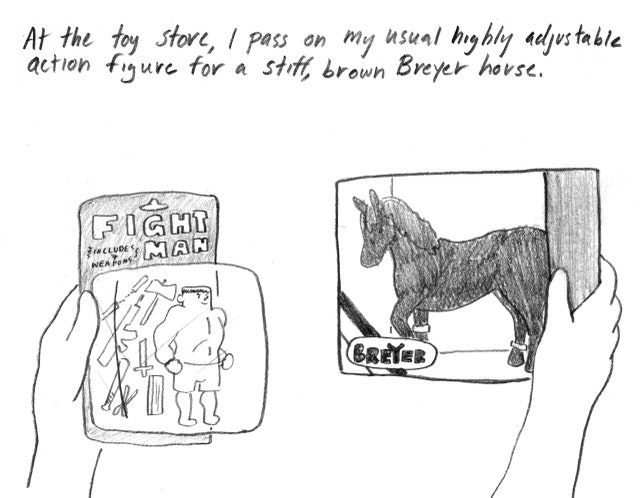 At the toy store, I pass on my usual highly adjustable
action figure for a stiff, brown Breyer horse.
FIGHT
MAN
INCLUDES
WEAPONS
BREYER